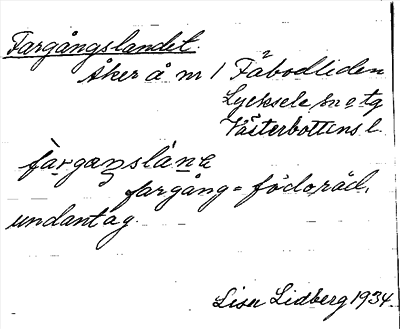 Fargångslandet.
Åker å nr 1 Fäbodliden
Lycksele sn o tg
Västerbottens l.
fargaŋslánɛ
fargång = födoråd,
undantag.
Lisa Lidberg 1934.